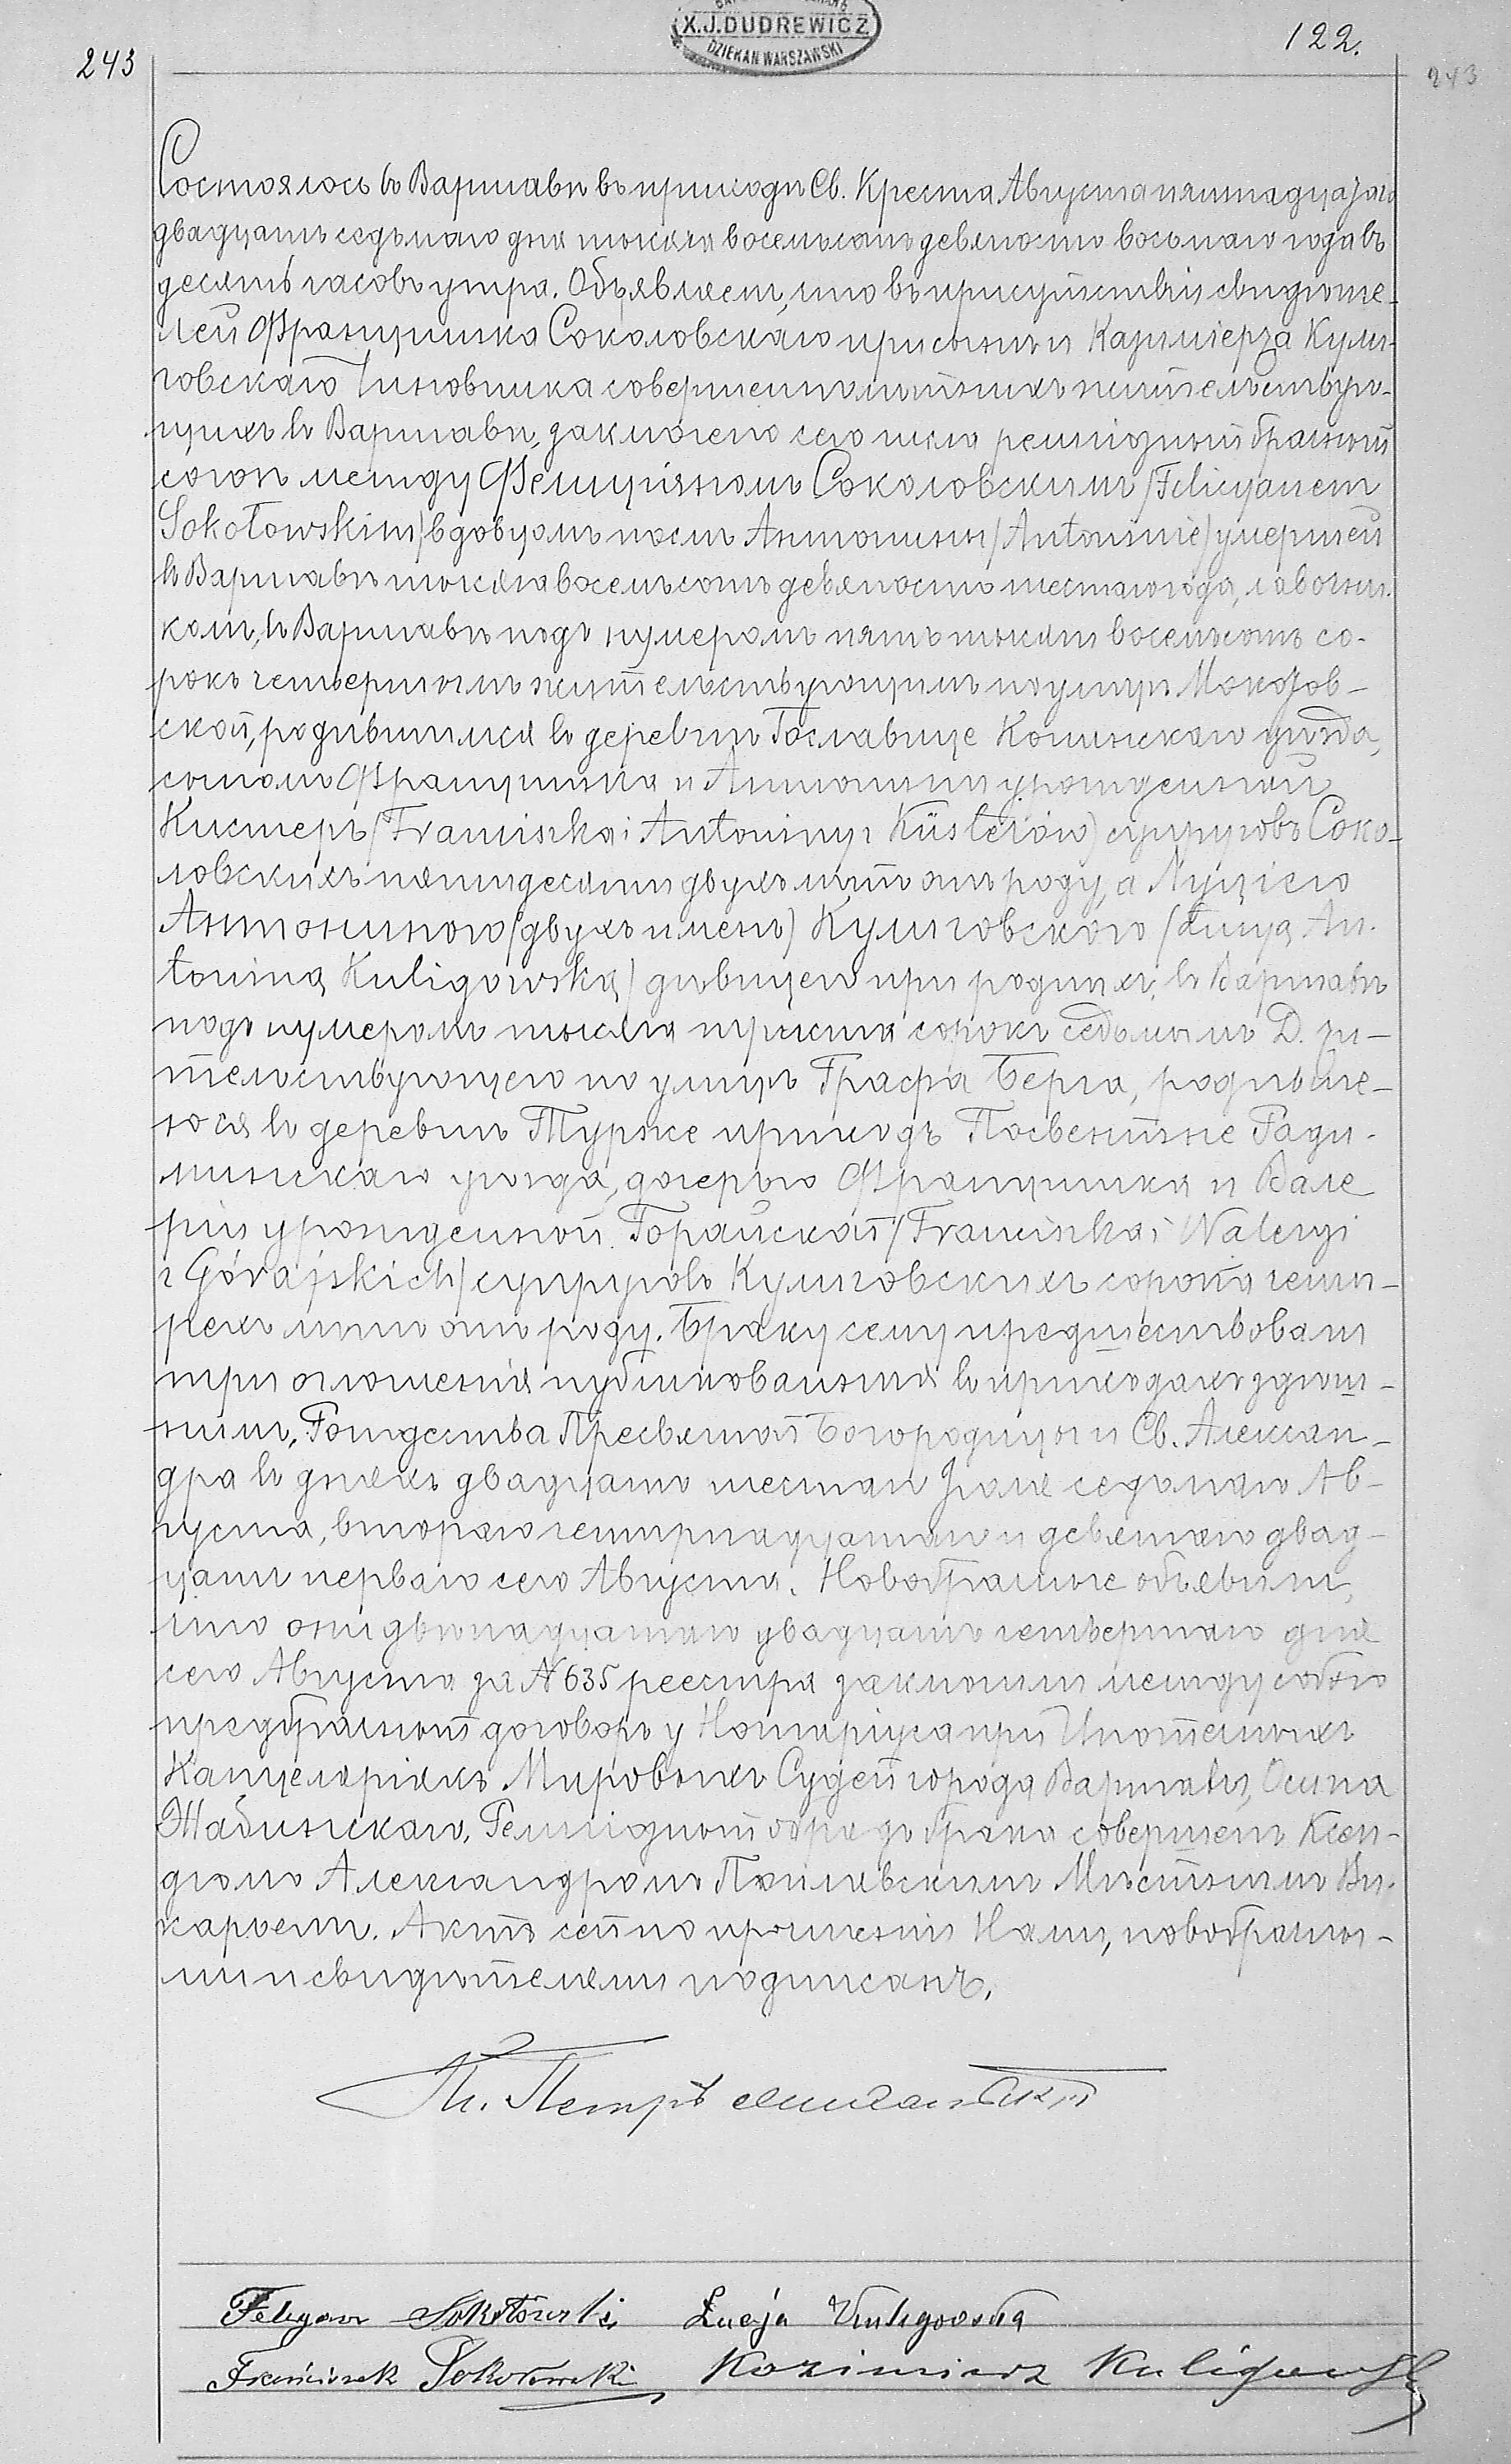 X.J.DUDREWICZ
DZIEKAN WARSZAWSKI
122.
243
243
Состоялось въ Варшавѣ въ приходѣ Св. Креста Августа пятнадцатаго
двадцать седьмаго дня тысяча восемьсотъ девяносто восьмаго года въ
десять часовъ утра. Объявляемъ, что въ присутствіи свидѣте-
лей Францишка Соколовскаго и Казимерза Кули-
говскаго Чиновника совершеннолѣтнихъ жительствую-
щихъ въ Варшавѣ, заключенъ сего числа религіозный брачный
союзъ между Фелиціяномъ Соколовскимъ /Felicyanem
Sokołowskim/ вдовцомъ послѣ Антонины /Antoninie/ умершей
въ Варшавѣ тысяча восемьсотъ девяносто шестаго года, лавочни-
комъ, въ Варшавѣ подъ нумеромъ пять тысячъ восемьсотъ со-
рокъ четвертымъ жительствующимъ по улицѣ Мокотов-
ской, родившимся въ деревнѣ Гославице Конинскаго уѣзда,
сыномъ Францишка и Антонины урожденной
Кистеръ /Franciszka i Antoniny z Küsterów/ супруговъ Соко-
ловскихъ пятидесяти двухъ лѣтъ отъ роду, а Луціею
Антониною /двухъ именъ/ Кулиговскою /Łucyą An-
toniną Kuligowską/ дѣвицею при родныхъ, въ Варшавѣ
подъ нумеромъ тысяча триста сорокъ седьмымъ D. жи-
тельствующею по улицѣ Графа Берга, родившe-
юся въ деревнѣ Туржe приходъ Посвентне Ради-
минскаго уѣзда, дочерью Францишка и Вале
ріи урожденной Горайской /Franciszka i Waleryi
z Górajskich/ супруговъ Кулиговскихъ сорока четы-
рехъ лѣтъ отъ роду. Браку сему предшествовали
три оглашенія публикованныя въ приходахъ здѣш-
нимъ, Рождества Пресвятой Богородицы и Св. Алексан-
дра въ дняхъ двадцать шестаго Іюля седьмаго Ав-
густа, втораго четырнадцатаго и девятаго двад-
цать перваго сего Августа. Новобрачные объявили,
что они двѣнадцатаго двадцать четвертаго дня
сего Августа за № 635 реестра заключили между собою
предбрачный договоръ у Нотаріуса при Ипотечныхъ
Канцеляріяхъ Мировыхъ Судей города Варшавы, Осипа
Жабинскаго. Религіозный обрядъ брака совершенъ Ксен-
дзомъ Александромъ Мѣстнымъ Ви-
каріемъ. Актъ сей по прочтеніи Нами, новобрачны-
ми и свидѣтелями подписанъ.
Петръ
Felicyan Sokołowski Łucja Kuligowska
Franciszek Sokołowski Kazimierz Kuligowski